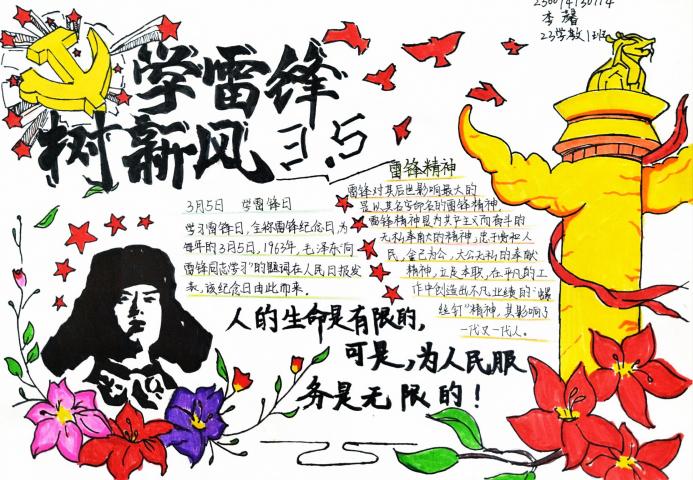 李馨
23学教1班
学雷锋
树新风 3.5
3月5日 学雷锋日
学习雷锋日,全称雷锋纪念日,为
每年的3月5日,1963年,毛泽东"向
雷锋同志学习"的题词在人民日报发
表,该纪念日由此而来。
雷锋精神
雷锋对其后世影响最大的
是以其名字命名的雷锋精神,
雷锋精神是为共产主义而奋斗的
无私奉献的精神,忠于党和人
民,舍己为公,大公无私的奉献
精神,立足本职,在平凡的工
作中创造出不凡业绩的"螺
丝钉"精神,其影响了
一代又一代人。
人的生命是有限的,
可是,为人民服
务是无限的!